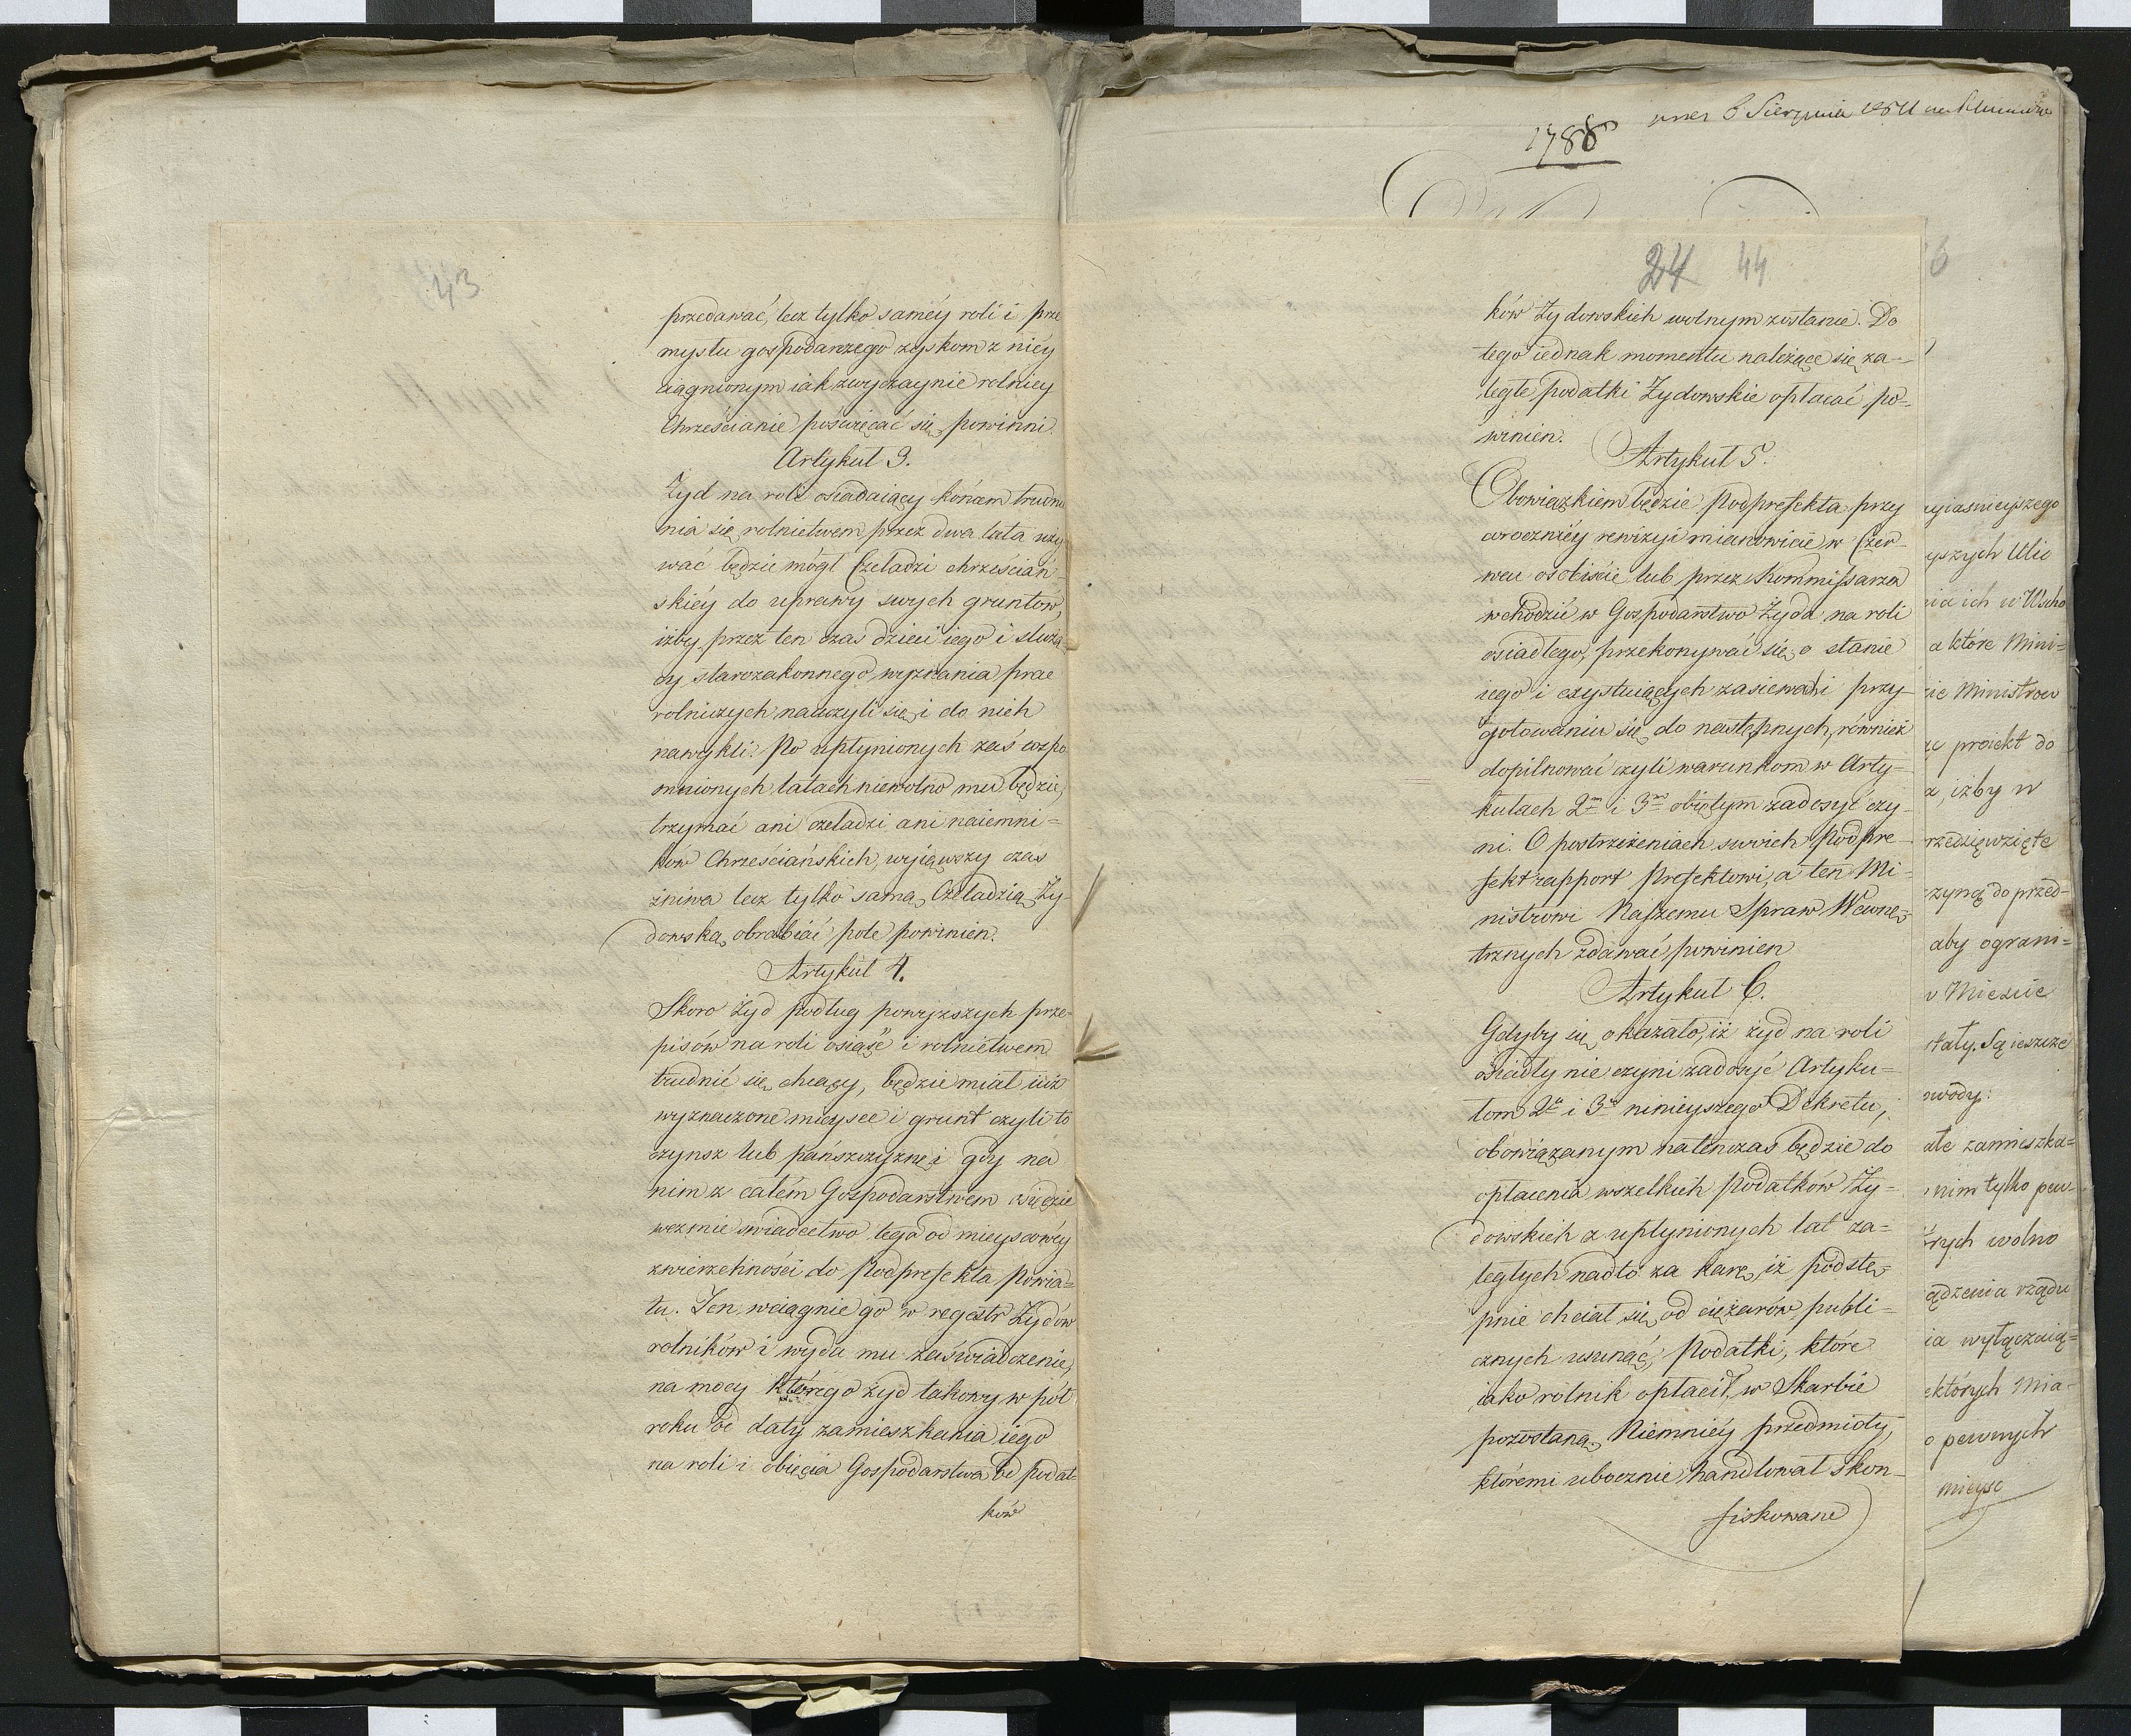 43
przedawać, lecz tylko saméy roli i prze
mysłu gospodarzego zyskom z niéy
ciągnionym iak zwyczaynie rolnicy
Chrześcianie poświęcać się powinni.
Artykuł 3.
Żyd na roli osiadaiący końcem trudnie
nia się rolnictwem przez dwa lata uży
wać będzie mógł Czeladzi chrześciań-
skiéy do uprawy swych gruntów,
iżby przez ten czas dzieci iego i służą
cy starozakonnego wyznania prac
rolniczych nauczyli się i do nich
nawykli. Po upłynionych zaś wspo
mnionych latach niewolno mu będzie,
trzymać ani czeladzi ani naiemni=
ków Chrześciańskich, wyiąwszy czas
żniwa lecz tylko samą Czeladzią Ży-
dowską obrabiać pole powinien.
Artykuł 4.
Skoro żyd podług powyższych prze-
pisów na roli osiąść i rolnictwem
trudnić się chcący, będzie miał iuż
wyznaczone mieysce i grunt czyli to
czynsz lub pańszczyznę i gdy na
nim z całém Gospodarstwem osiędzie
weźmie świadectwo tego od mieyscowéy
zwierzchności do Podprefekta Powia=
tu. Ten wciągnie go w regestr Żydów
rolników i wyda mu zaświadczenie,
na mocy którego żyd takowy w pół
roku od daty zamieszkania iego
na roli i obięcia Gospodarstwa od podat=
ków
1788
6 Sierpnia
24 44
ków Żydowskich wolnym zostanie. Do
tego iednak momentu należące się za-
ległe podatki Żydowskie opłacać po-
winien.
Artykuł 5.
Obowiązkiem będzie Podprefekta przy
corocznéy rewizyi mianowicie w Czer-
wcu osobiście lub przez Kommissarza
wchodzić w Gospodarstwo Żyda na roli
osiadłego, przekonywać się o stanie
iego i exystuiących zasiewach i przy-
gotowaniu się do następnych, również
dopilnować czyli warunkom w Arty-
kułach 2m i 3m obiętym zadosyć czy-
ni. O postrzeżeniach swoich Podpre-
fekt rapport Prefektowi, a ten Mi-
nistrowi Naszemu Spraw Wewnę-
trznych zdawać powinien
Artykuł 6.
Gdyby się okazało, iż żyd na roli
osiadły nie czyni zadosyć Artyku=
łom 2o i 3o ninieyszego Dekretu,
obowiązanym natenczas będzie do
opłacenia wszelkich Podatków Ży-
dowskich z upłynionych lat za=
ległych nadto za karę, iż podstę-
pnie chciał się od ciężarów publi-
cznych usunąć, Podatki, które
iako rolnik opłacił, w Skarbie
pozostaną. Niemniéy przedmioty,
któremi ubocznie handlował skon-
fiskowane
yiaśnieyszego
yszych Ulic
nia ich w Uscho
a które Mini=
ie Ministrow
że proiekt do
a, iżby w
rzedsięwzięte
czynią do przed-
aby ograni=
w Mieście
stały. Są ieszcze
wody:
ałe zamieszka=
nim tylko pew-
rych wolno
ądzenia rządu
ia wyłączaią=
których Mia-
o pewnych
mieysc